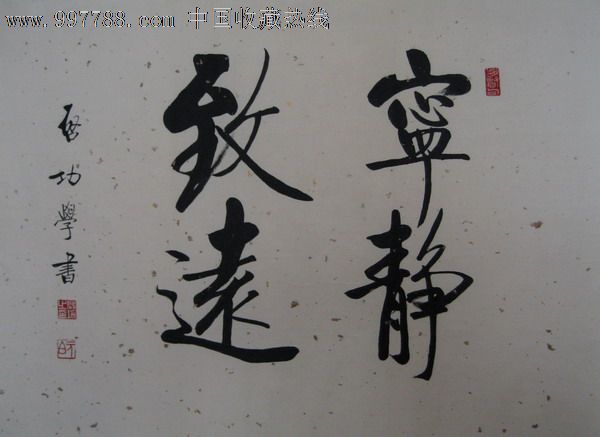 www.997788.com 中国收藏热线
寧靜
致遠
啓功學書